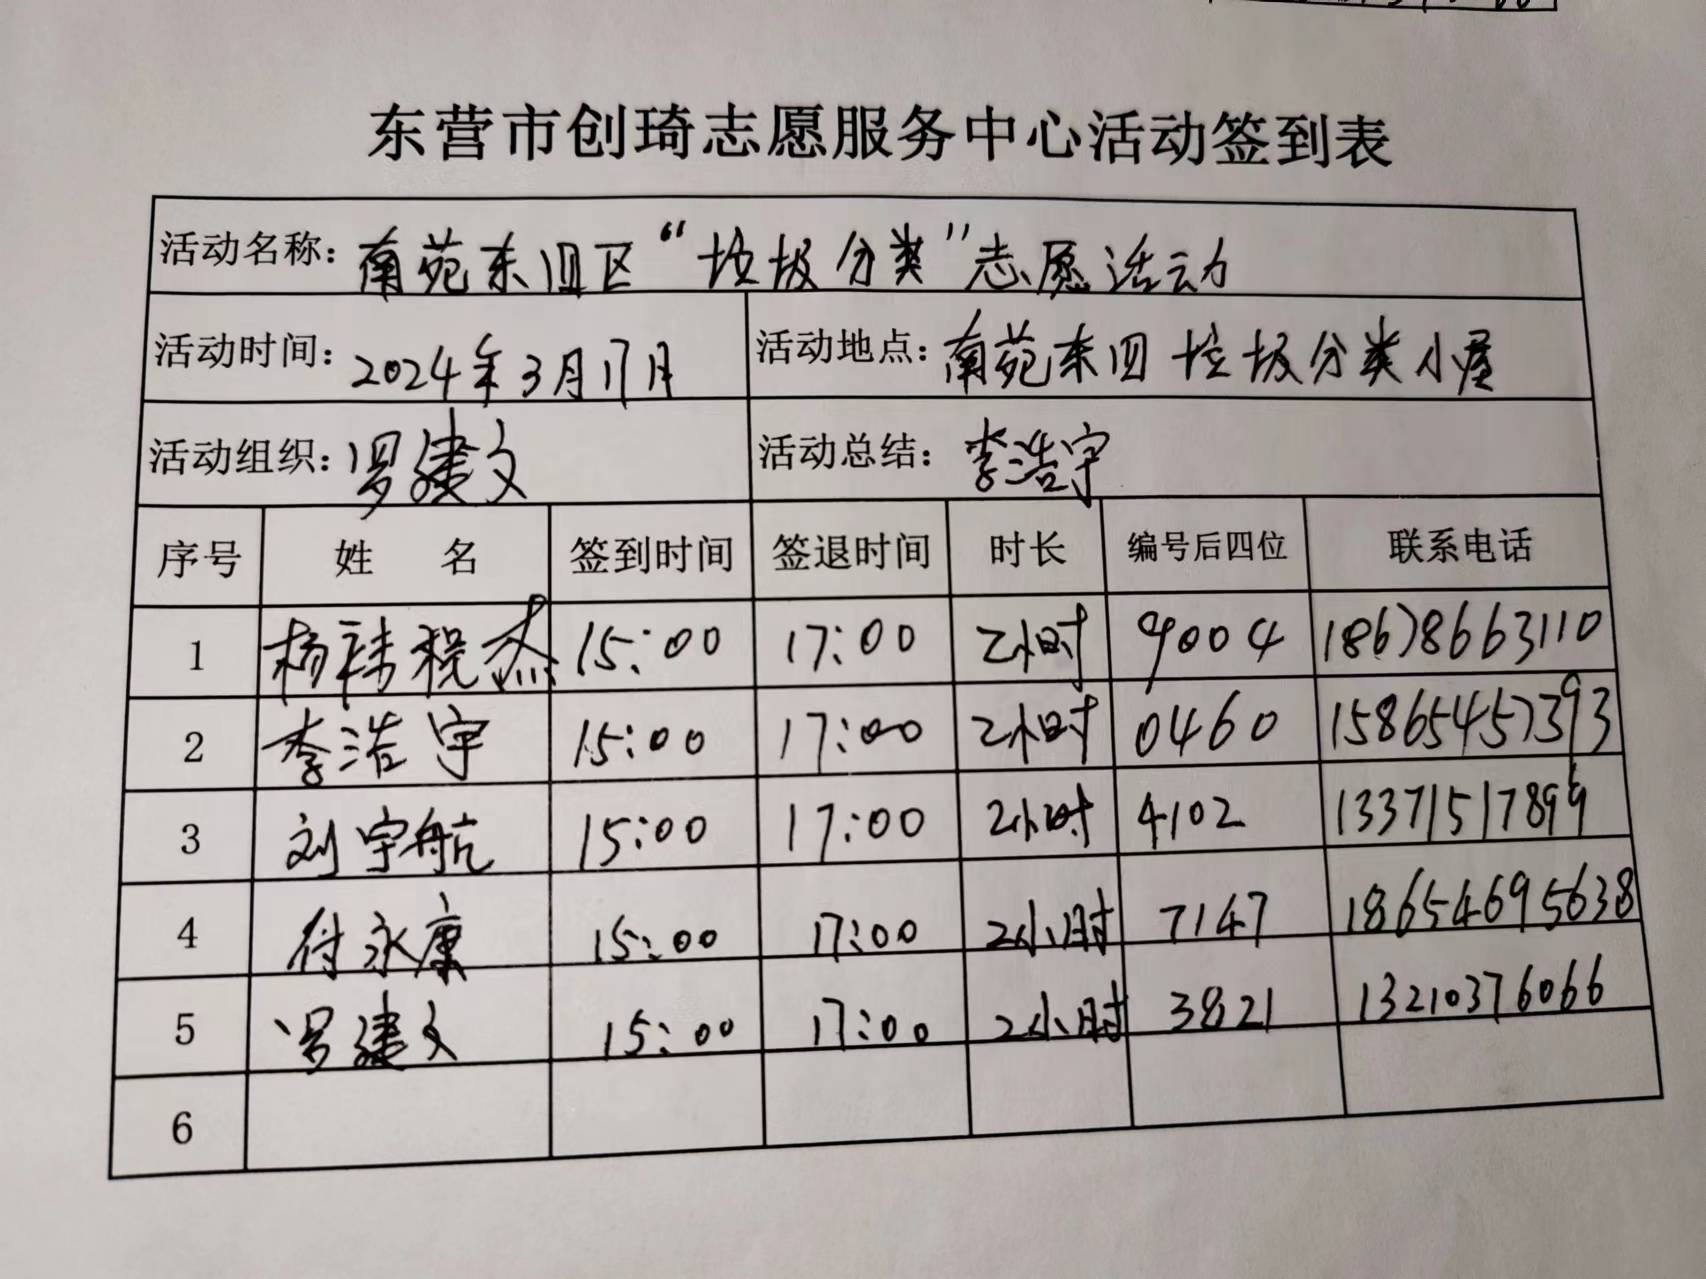 东营市创琦志愿服务中心活动签到表
活动名称: 南苑东四区“垃圾分类”志愿活动
活动时间: 2024年3月17日 活动地点: 南苑东四垃圾分类小屋
活动组织: 罗建文 活动总结: 李浩宇
序号 姓 名 签到时间 签退时间 时长 编号后四位 联系电话
1 杨祎 15:00 17:00 2小时 9004 18678663110
2 李浩宇 15:00 17:00 2小时 0460 15865457393
3 刘宇航 15:00 17:00 2小时 4102 13371517899
4 付永康 15:00 17:00 2小时 7147 18654695638
5 罗建文 15:00 17:00 2小时 3821 13210376066
6